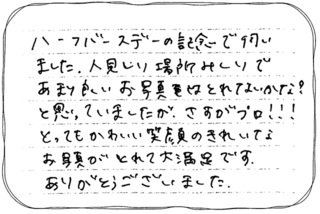 ハーフバースデーの記念で伺い
ました。人見しり場所みしりで
あまり良いお写真はとれないかな?
と思っていましたが、さすがプロ!!!
とってもかわいい笑顔のきれいな
お写真がとれて大満足です。
ありがとうございました。